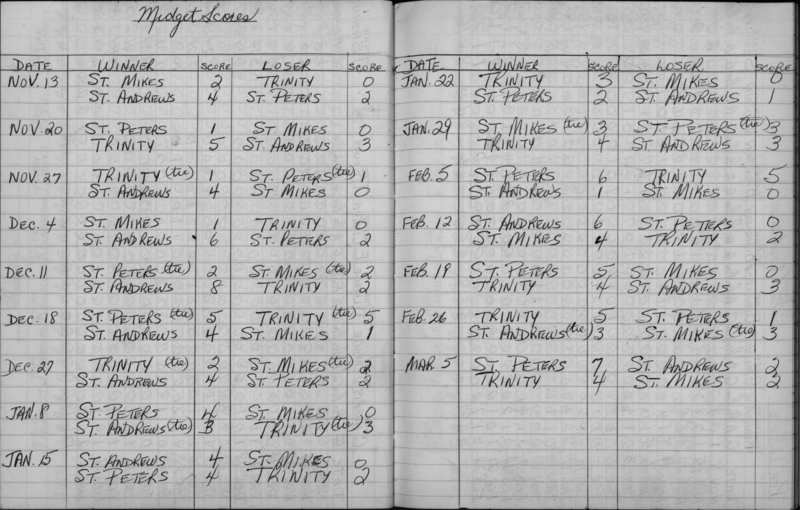 Midget Scores
DATE WINNER SCORE LOSER SCORE
NOV. 13 ST. MIKES 2 TRINITY 0
ST. ANDREWS 4 ST. PETERS 2
NOV. 20 ST. PETERS 1 ST. MIKES 0
TRINITY 5 ST. ANDREWS 3
NOV. 27 TRINITY (tie) 1 ST. PETERS (tie) 1
ST. ANDREWS 4 ST. MIKES 0
DEC. 4 ST. MIKES 1 TRINITY 0
ST. ANDREWS 6 ST. PETERS 2
DEC. 11 ST. PETERS (tie) 2 ST. MIKES (tie) 2
ST. ANDREWS 8 TRINITY 2
DEC. 18 ST. PETERS (tie) 5 TRINITY (tie) 5
ST. ANDREWS 4 ST. MIKES 1
DEC. 27 TRINITY (tie) 2 ST. MIKES (tie) 2
ST. ANDREWS 4 ST. PETERS 2
JAN. 8 ST. PETERS 4 ST. MIKES 0
ST. ANDREWS (tie) 3 TRINITY (tie) 3
JAN. 15 ST. ANDREWS 4 ST. MIKES 0
ST. PETERS 4 TRINITY 2
DATE WINNER SCORE LOSER SCORE
JAN. 22 TRINITY 3 ST. MIKES 0
ST. PETERS 2 ST. ANDREWS 1
JAN. 29 ST. MIKES (tie) 3 ST. PETERS (tie) 3
TRINITY 4 ST. ANDREWS 3
FEB. 5 ST. PETERS 6 TRINITY 5
ST. ANDREWS 1 ST. MIKES 0
FEB. 12 ST. ANDREWS 6 ST. PETERS 0
ST. MIKES 4 TRINITY 2
FEB. 19 ST. PETERS 5 ST. MIKES 0
TRINITY 4 ST. ANDREWS 3
FEB. 26 TRINITY 5 ST. PETERS 1
ST. ANDREWS (tie) 3 ST. MIKES (tie) 3
MAR. 5 ST. PETERS 7 ST. ANDREWS 2
TRINITY 4 ST. MIKES 2